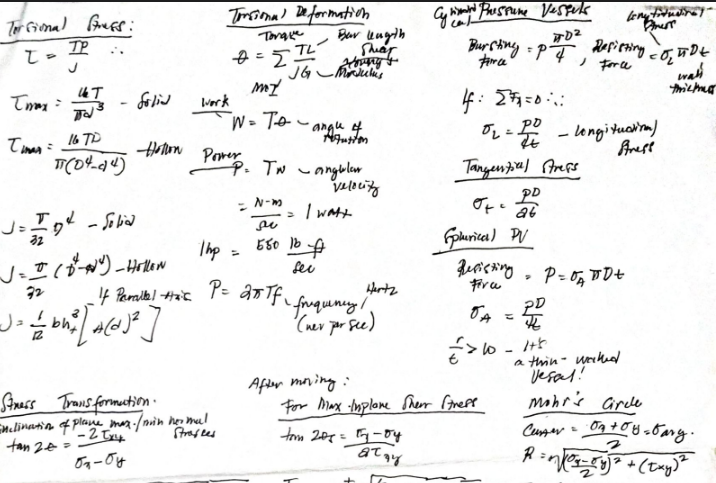 Torsional Stress:
τ = TP/J ∴
τmax = 16T/πd³ - Solid
τmax = 16TD/π(D⁴-d⁴) - Hollow
J = π/32 D⁴ - Solid
J = π/32 (D⁴-d⁴) - Hollow
If Parallel-Axis
J = 1/12 bh³ + [A(d)²]
Torsional Deformation
Torque Bar Length
θ = Σ TL/JG Shear Modulus
MOI
Work
W = Tθ - angle of rotation
Power
P = Tω - angular velocity
= N-m/sec = 1 watt
1hp = 550 lb-ft/sec
P = 2πTf frequency / Hertz
(rev per sec)
Cylindrical Pressure Vessels
Longitudinal Stress
Bursting Force = P πD²/4 , Resisting Force = σL πDt
wall thickness
If: ΣFx=0 ∴
σL = PD/4t - Longitudinal Stress
Tangential Stress
σt = PD/2t
Spherical PV
Resisting Force = P = σA πDt
σA = PD/4t
r/t > 10 - It's
a thin-walled
Vessel!
Stress Transformation.
Inclination of plane max./min normal
Stresses
tan 2θ = -2τxy/σx-σy
After moving:
For Max-Inplane Shear Stress
tan 2θs = σx-σy/2τxy
Mohr's Circle
Center = σx+σy/2 = σavg.
R = √(σx-σy/2)² + (τxy)²